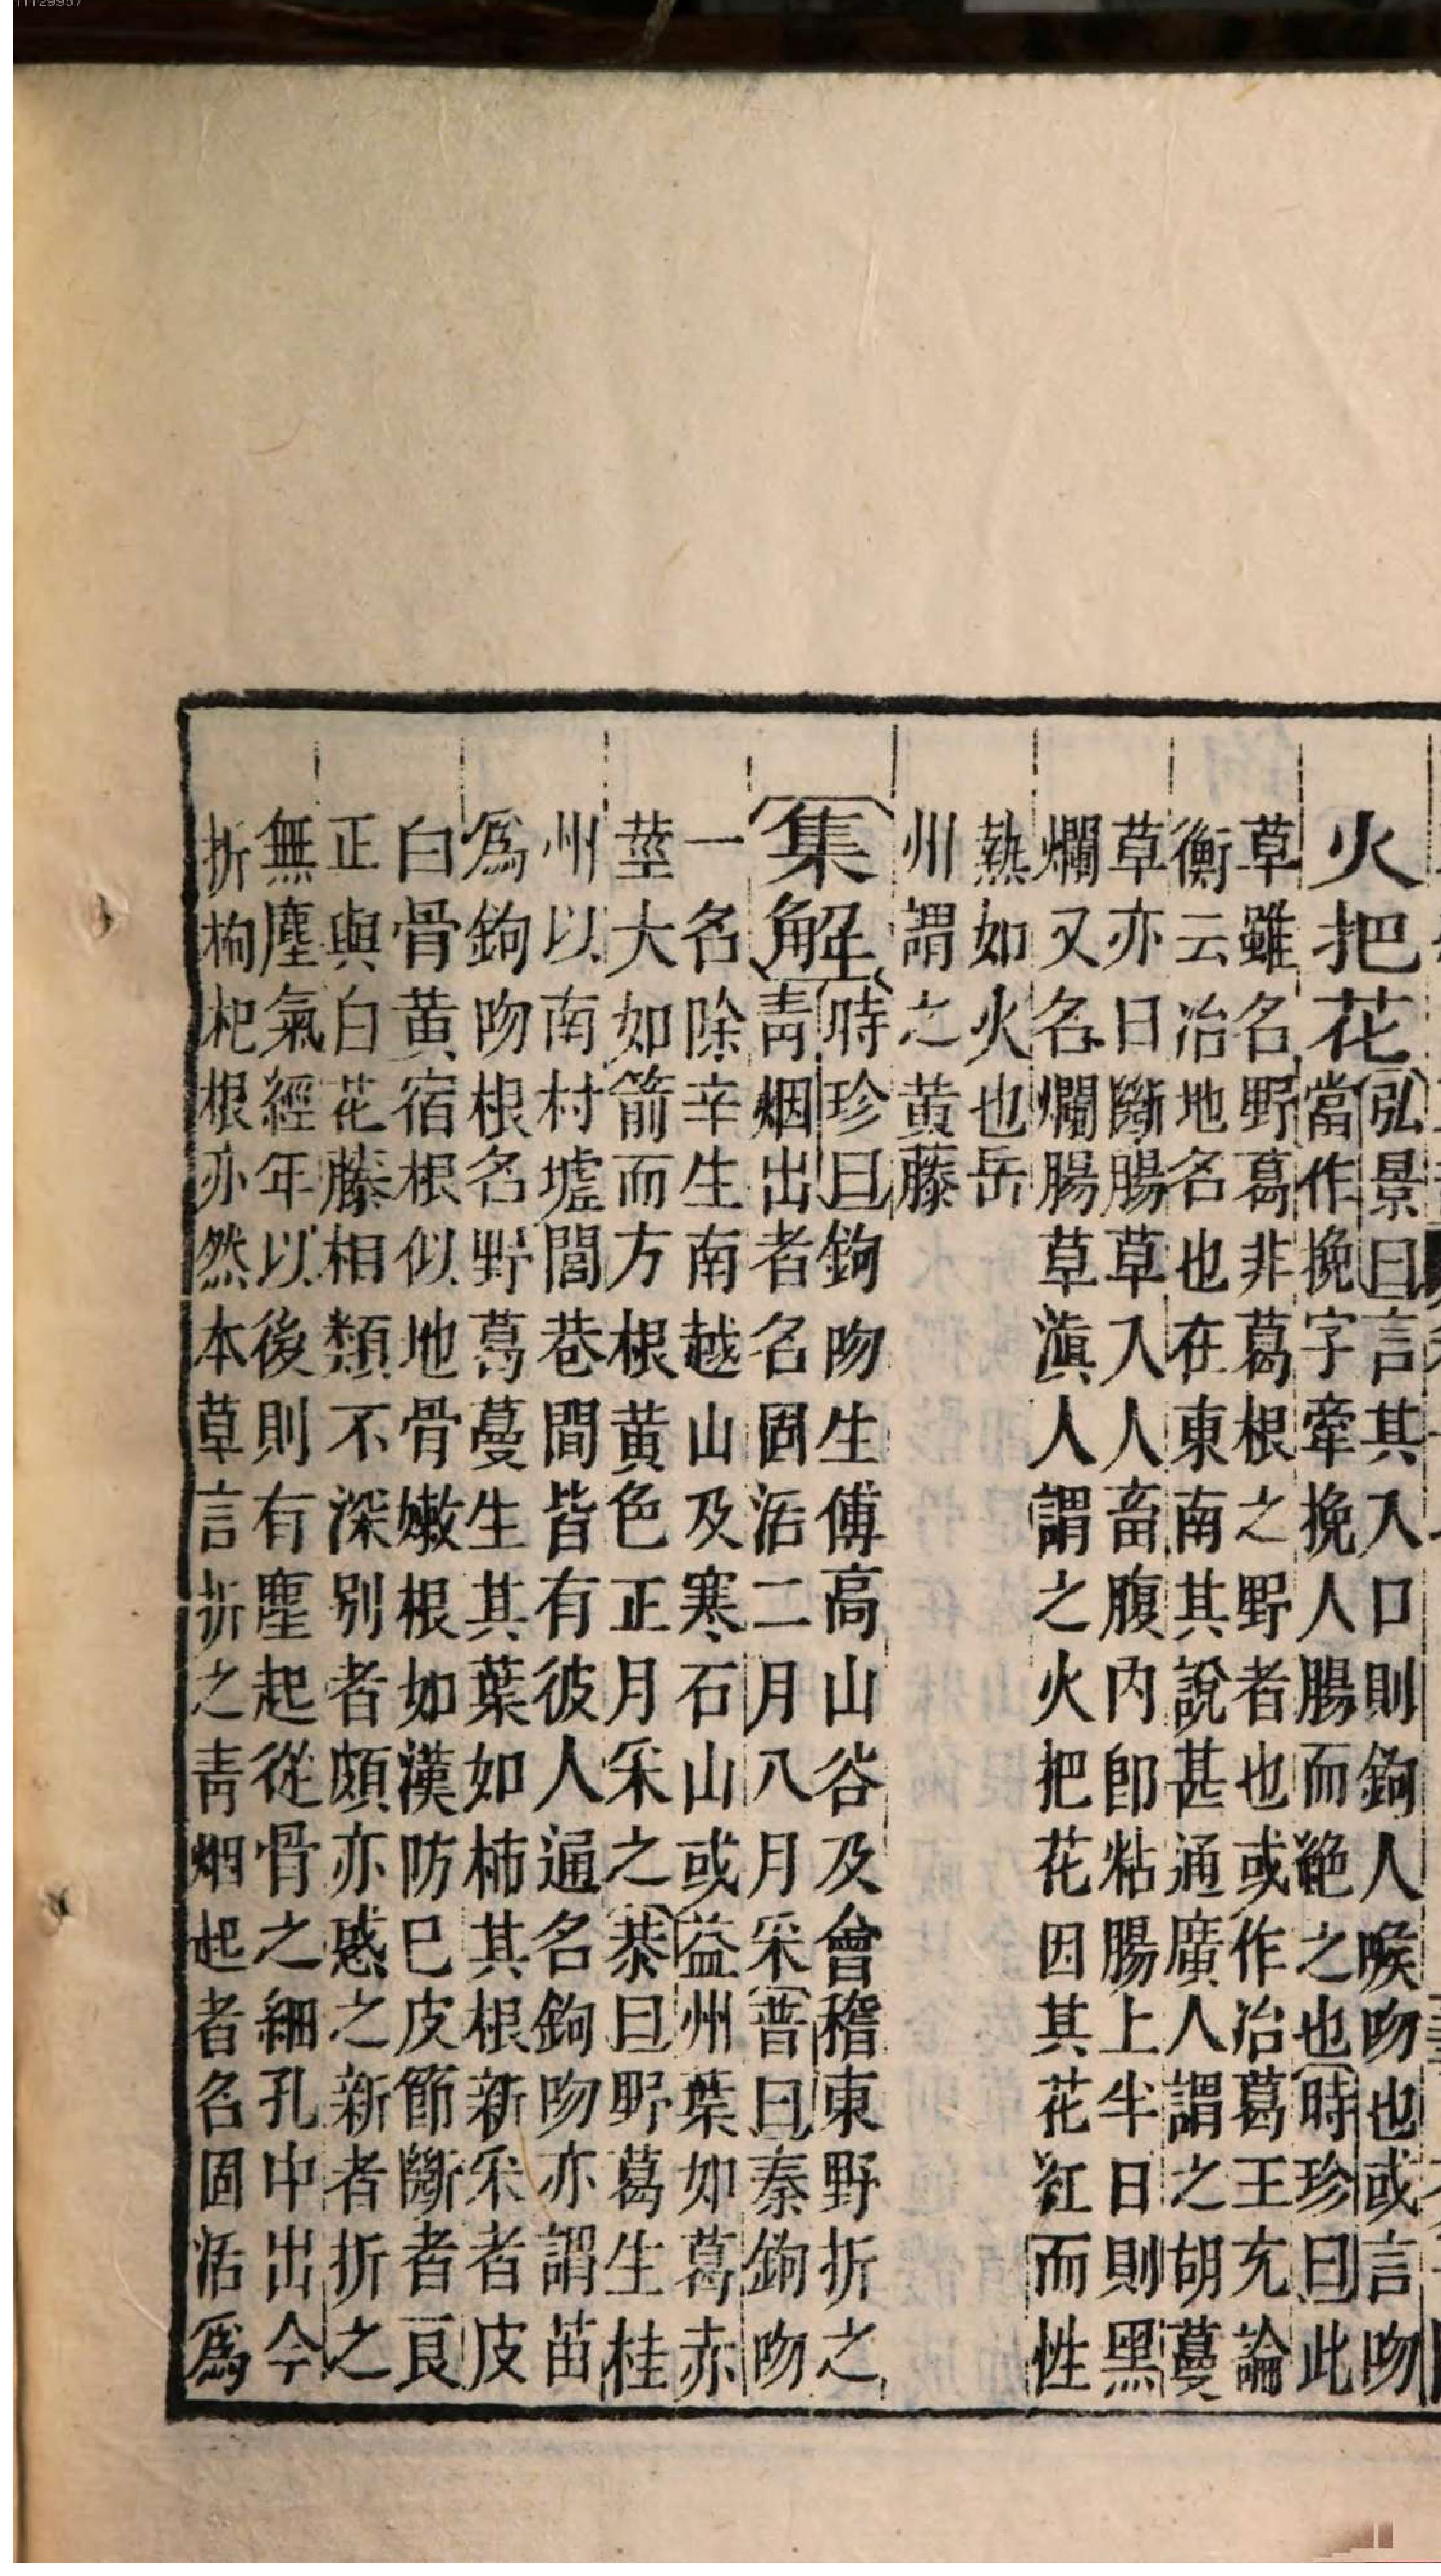 11129957
火把花弘景曰言其入口則鉤人喉吻也或言吻
當作挽字牽挽人腸而絶之也時珍曰此
草雖名野葛非葛根之野者也或作冶葛王充論
衡云冶地名也在東南其說甚通廣人謂之胡蔓
草亦曰斷腸草入人畜腹内卽粘腸上半日則黑
爛又名爛腸草滇人謂之火把花因其花紅而性
熱如火也岳
州謂之黄藤
集解時珍曰鉤吻生傅高山谷及會稽東野折之
青烟出者名固活二月八月采普曰秦鉤吻
一名除辛生南越山及寒石山或益州葉如葛赤
莖大如箭而方根黄色正月采之恭曰野葛生桂
州以南村墟閭巷間皆有彼人通名鉤吻亦謂苗
爲鉤吻根名野葛蔓生其葉如柿其根新采者皮
白骨黄宿根似地骨嫩根如漢防巳皮節斷者良
正與白花藤相類不深别者頗亦惑之新者折之
無塵氣經年以後則有塵起從骨之細孔中出今
折枸杞根亦然本草言折之青烟起者名固活爲